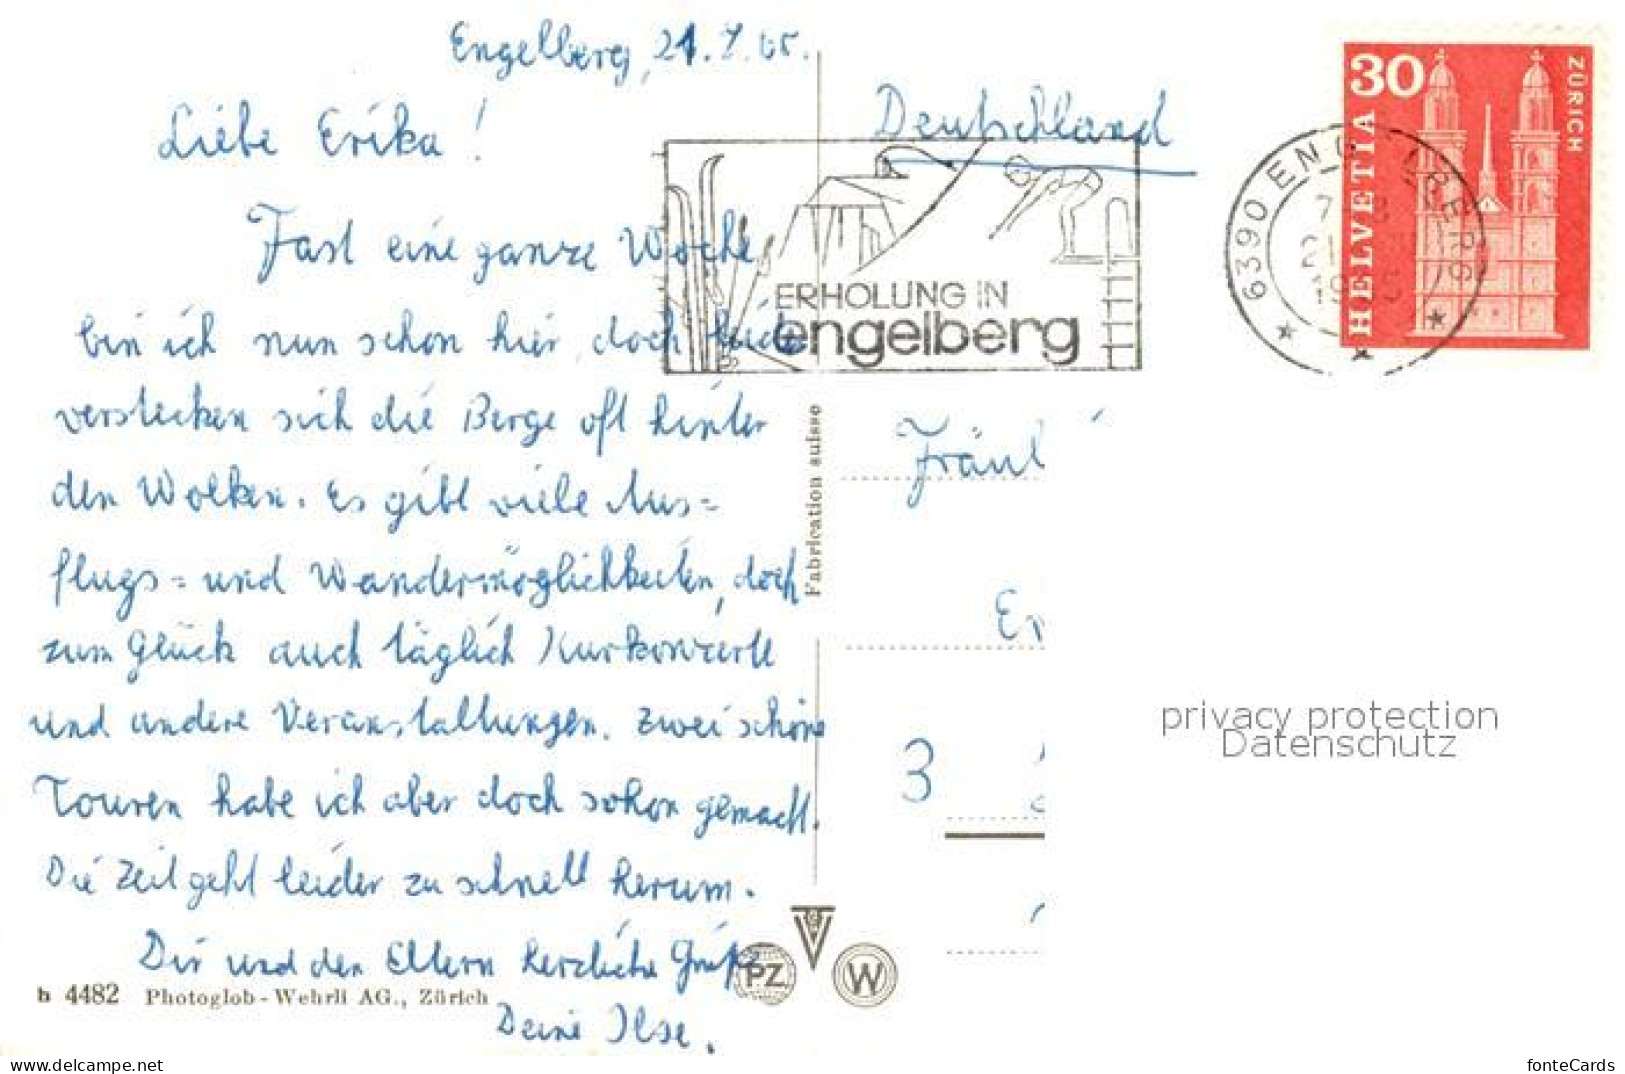 Engelberg, 21.7.65.
Liebe Erika!
Fast eine ganze Woche
bin ich nun schon hier, doch leider
verstecken sich die Berge oft hinter
den Wolken. Es gibt viele Aus=
flugs= und Wandermöglichkeiten, doch
zum Glück auch täglich Kurkonzerte
und andere Veranstaltungen. Zwei schöne
Touren habe ich aber doch schon gemacht.
Die Zeit geht leider zu schnell herum.
Dir und den Eltern herzliche Grüße
Deine Ilse.
h 4482 Photoglob-Wehrli AG., Zürich
Fabrication suisse
PZ
W
Deutschland
ERHOLUNG IN
engelberg
6390 ENGELBERG
30
HELVETIA
ZÜRICH
Fräul
Er
3
privacy protection
Datenschutz
delcampe.net
fonteCards